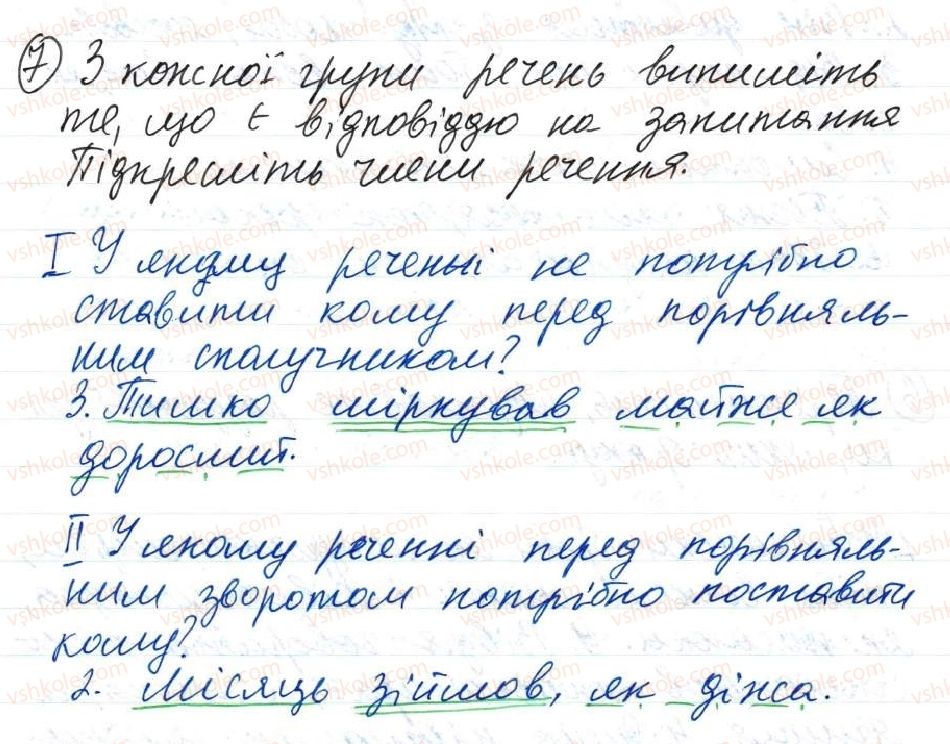 7 З кожної групи речень випишіть
те, що є відповіддю на запитання
Підкресліть члени речення.
І У якому реченні не потрібно
ставити кому перед порівняль-
ним сполучником?
3. Тимко міркував майже як
дорослий.
ІІ У якому реченні перед порівняль-
ним зворотом потрібно поставити
кому?
2. Місяць зійшов, як діжа.